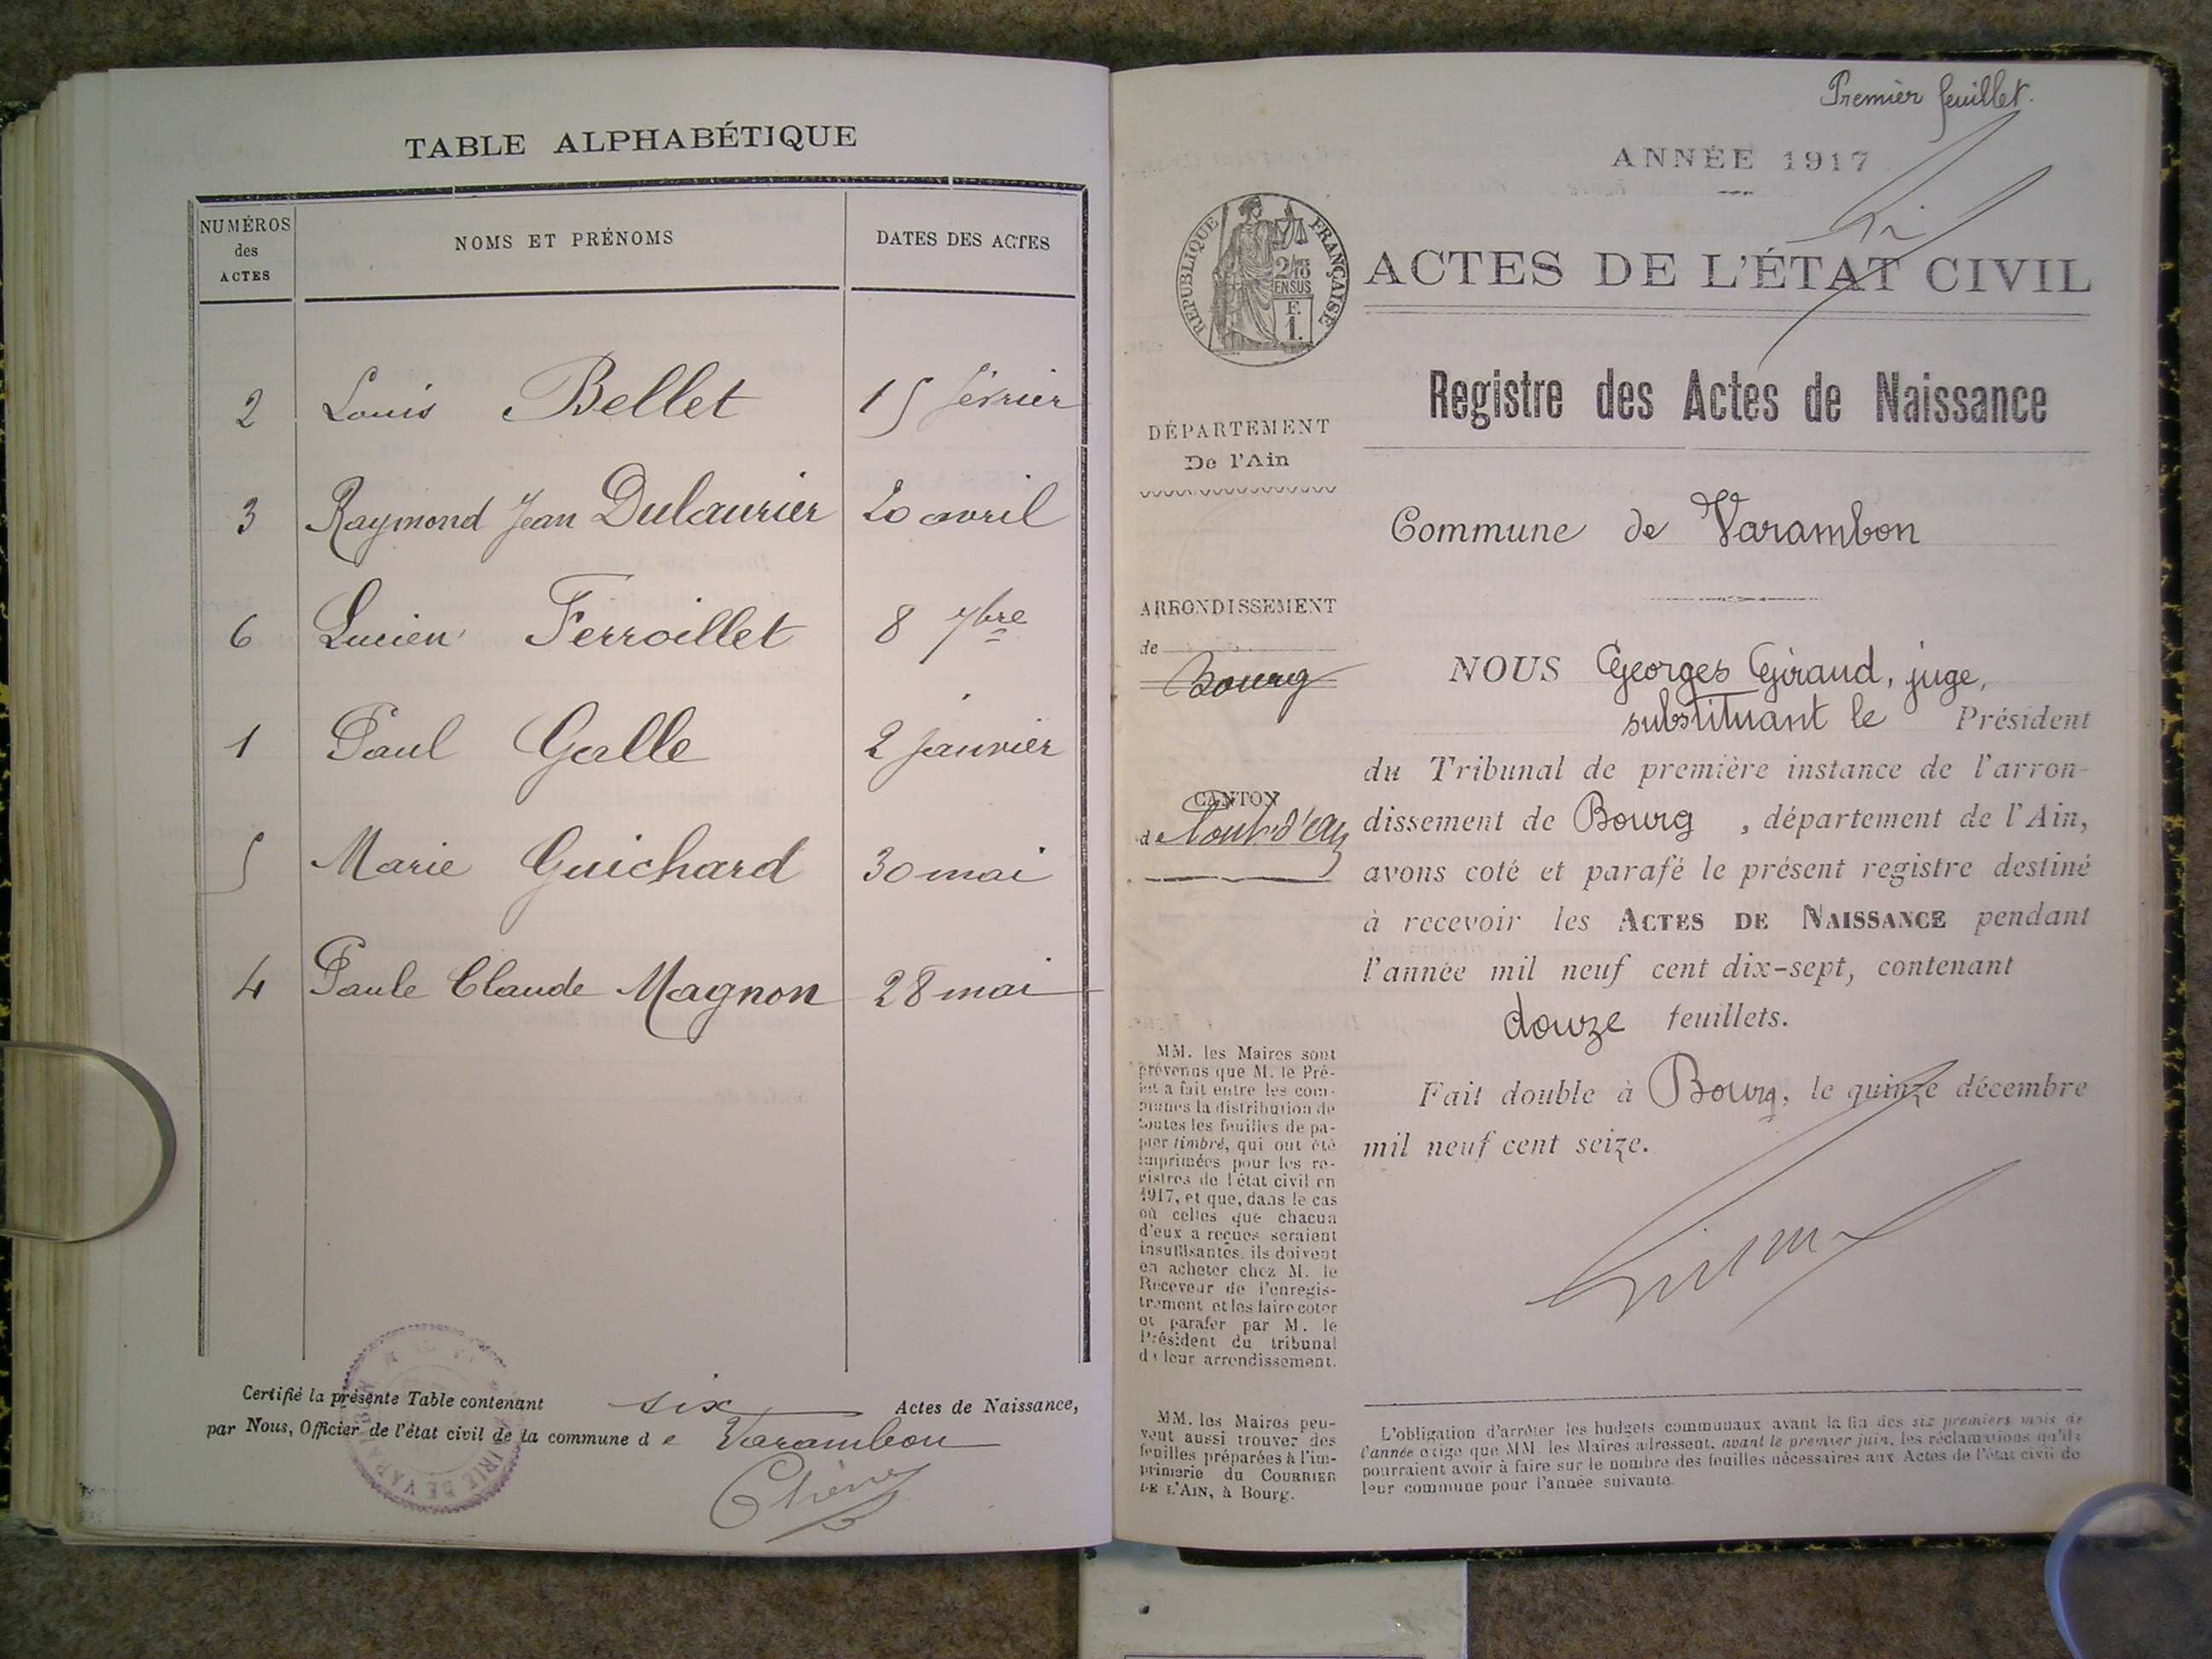 TABLE ALPHABÉTIQUE
NUMÉROS
des
ACTES
NOMS ET PRÉNOMS
DATES DES ACTES
2 Louis Bellet 15 février
3 Raymond Jean Dulaurier 20 avril
6 Lucien Ferroillet 8 7bre
1 Paul Galle 2 janvier
5 Marie Guichard 30 mai
4 Paule Claude Magnon 28 mai
Certifié la présente Table contenant six Actes de Naissance,
par Nous, Officier de l'état civil de la commune de Varambon
MAIRIE DE VARAMBON
Premier feuillet.
ANNÉE 1917
RÉPUBLIQUE FRANÇAISE
2/10
EN SUS
F.
1.
ACTES DE L'ÉTAT CIVIL
Registre des Actes de Naissance
DÉPARTEMENT
De l'Ain
ARRONDISSEMENT
de
Bourg
CANTON
de Pont-d'Ain
Commune de Varambon
NOUS Georges Giraud, juge,
substituant le Président
du Tribunal de première instance de l'arron-
dissement de Bourg, département de l'Ain,
avons coté et parafé le présent registre destiné
à recevoir les ACTES DE NAISSANCE pendant
l'année mil neuf cent dix-sept, contenant
douze feuillets.
Fait double à Bourg, le quinze décembre
mil neuf cent seize.
MM. les Maires sont
prévenus que M. le Pré-
fet a fait entre les com-
munes la distribution de
toutes les feuilles de pa-
pier timbré, qui ont été
imprimées pour les re-
gistres de l'état civil en
1917, et que, dans le cas
où celles que chacun
d'eux a reçues seraient
insuffisantes, ils doivent
en acheter chez M. le
Receveur de l'enregis-
trement et les faire coter
et parafer par M. le
Président du tribunal
de leur arrondissement.
MM. les Maires peu-
vent aussi trouver des
feuilles préparées à l'im-
primerie du COURRIER
DE L'AIN, à Bourg.
L'obligation d'arrêter les budgets communaux avant la fin des six premiers mois de
l'année exige que MM. les Maires adressent, avant le premier juin, les réclamations qu'ils
pourraient avoir à faire sur le nombre des feuilles nécessaires aux Actes de l'état civil de
leur commune pour l'année suivante.